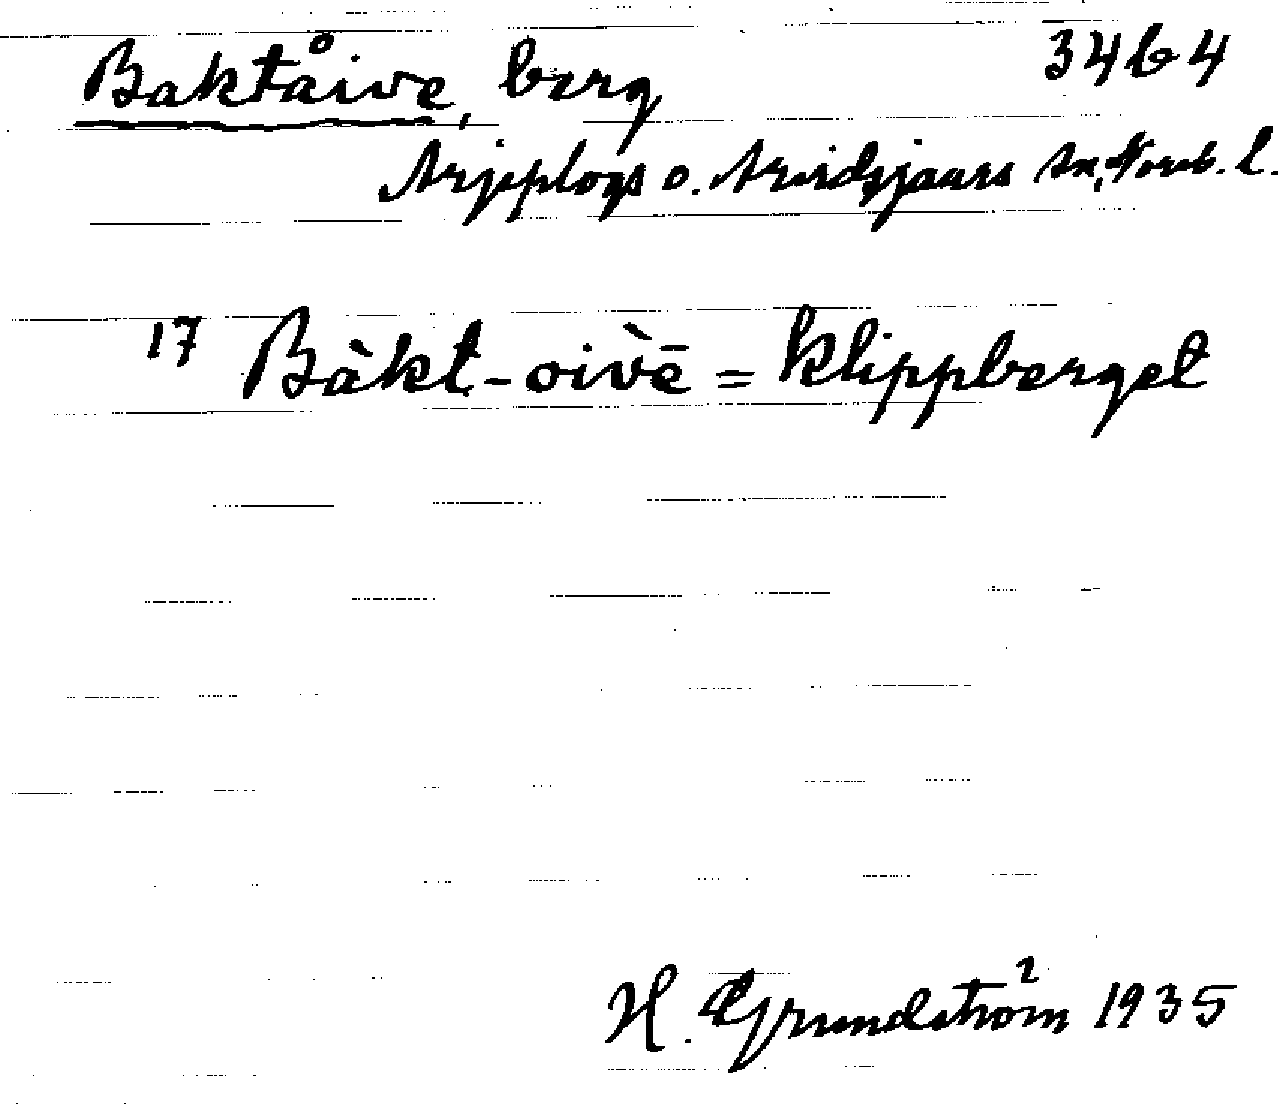 Baktåive, berg 3464
Arjeplogs o. Arvidsjaurs sn, Norrb. l.
17 Bàkt-oivē = klippberget
H. Grundström 1935